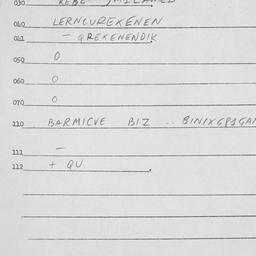 030
040 LERNCUREKENEN
041 - QREKENENDIK
050 0
060 0
070 0
110 BARMICVE BIZ ..
111 -
112 + QU